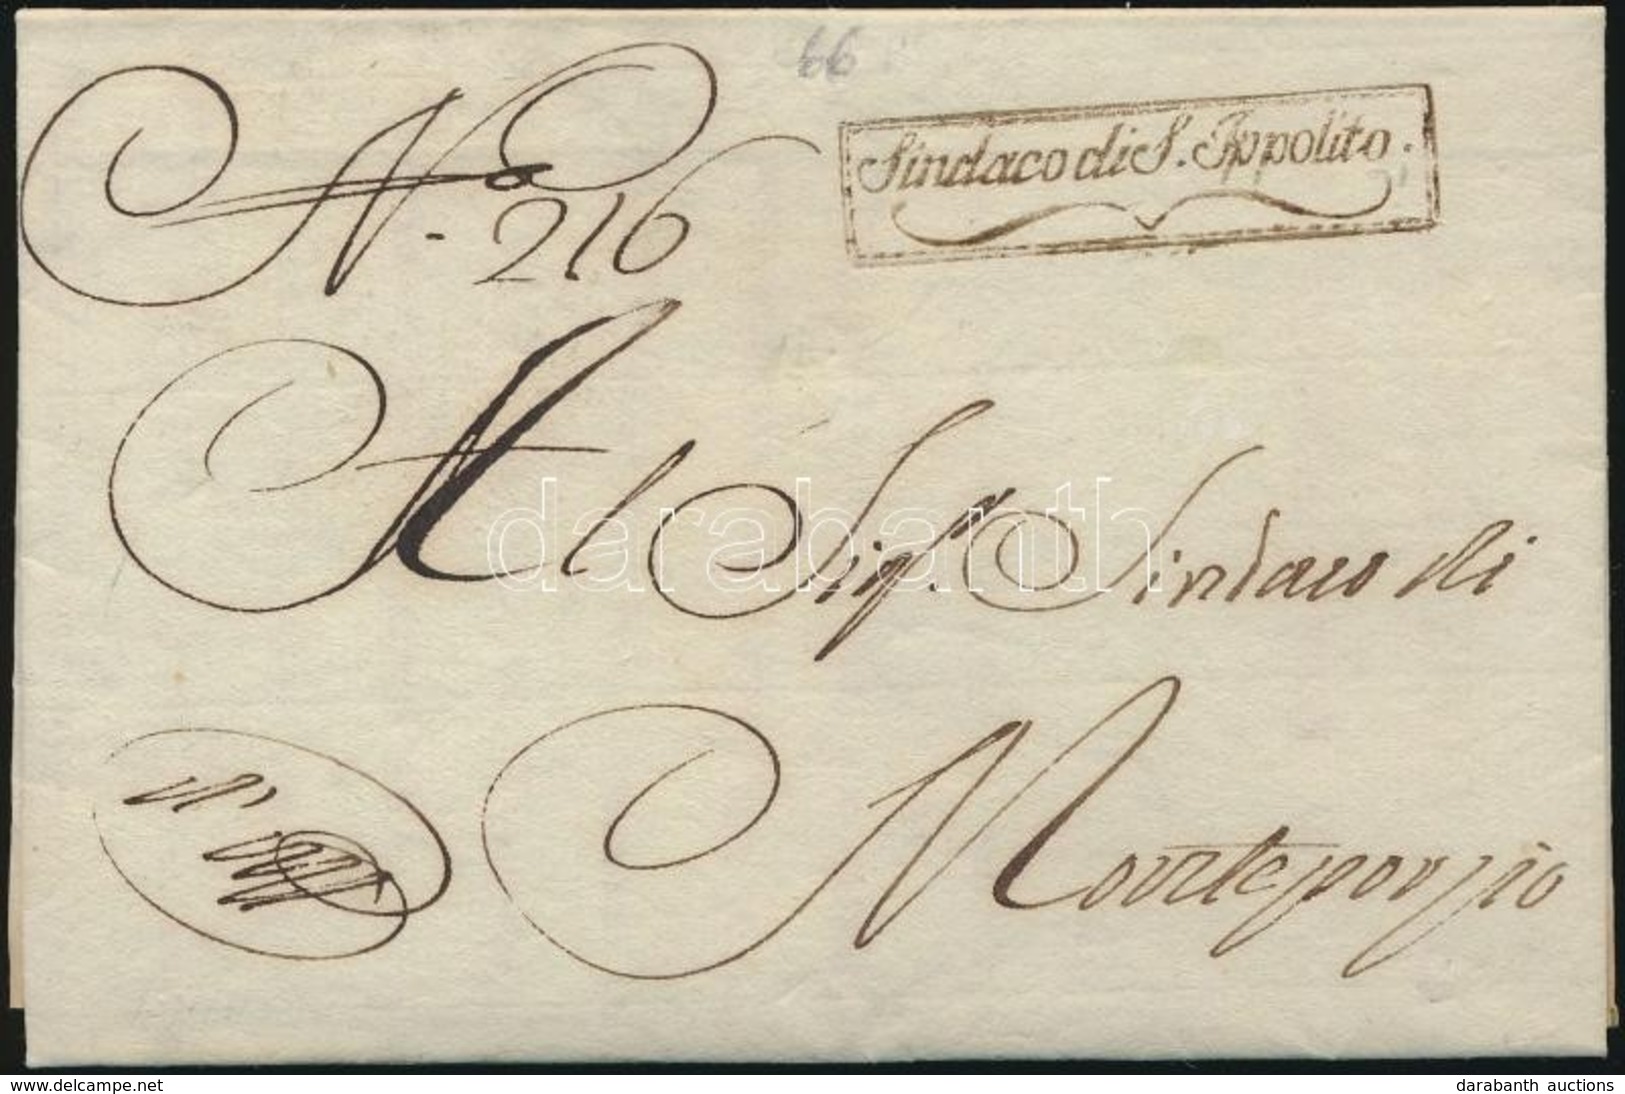 66
Sindaco di S. Ippolito.
No. 216
Al Sigr. Sindaco di
Monteporzio
darabanth
www.delcampe.net
darabanth auctions